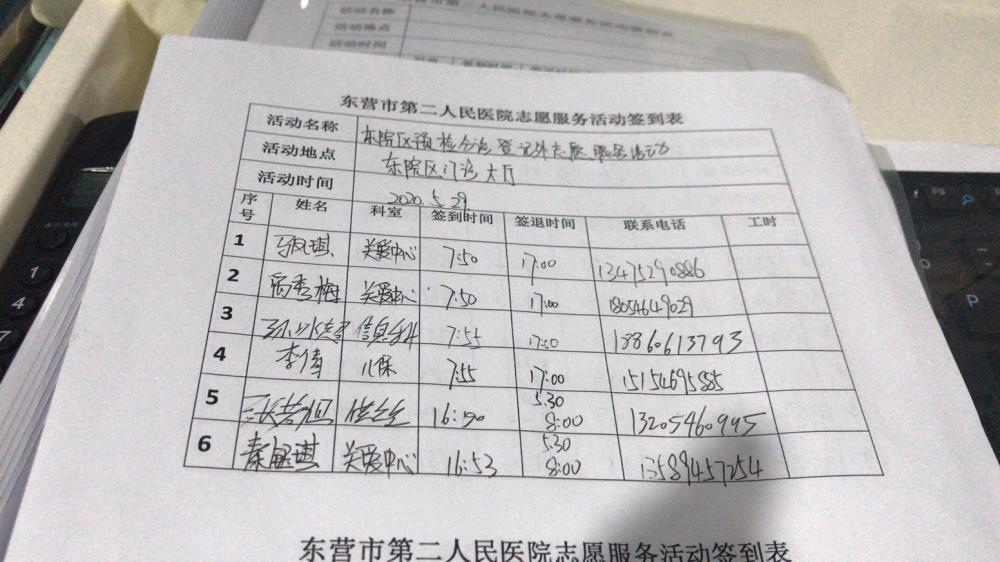 活动名称
活动地点
活动时间
东营市第二人民医院志愿服务活动签到表
活动名称 东院区预检分诊登记外志愿服务活动
活动地点 东院区门诊大厅
活动时间 2020.5.29
序号 姓名 科室 签到时间 签退时间 联系电话 工时
1 关爱中心 7:50 17:00 13475290886
2 关爱中心 7:50 17:00 18054649029
3 信息科 7:55 17:00 18860613793
4 李倩 儿保 7:55 17:00 15154695885
5 16:50 5.30 8:00 13205460995
6 秦钰琪 关爱中心 16:53 5.30 8:00 13589457254
东营市第二人民医院志愿服务活动签到表
F9
P
1
4
7